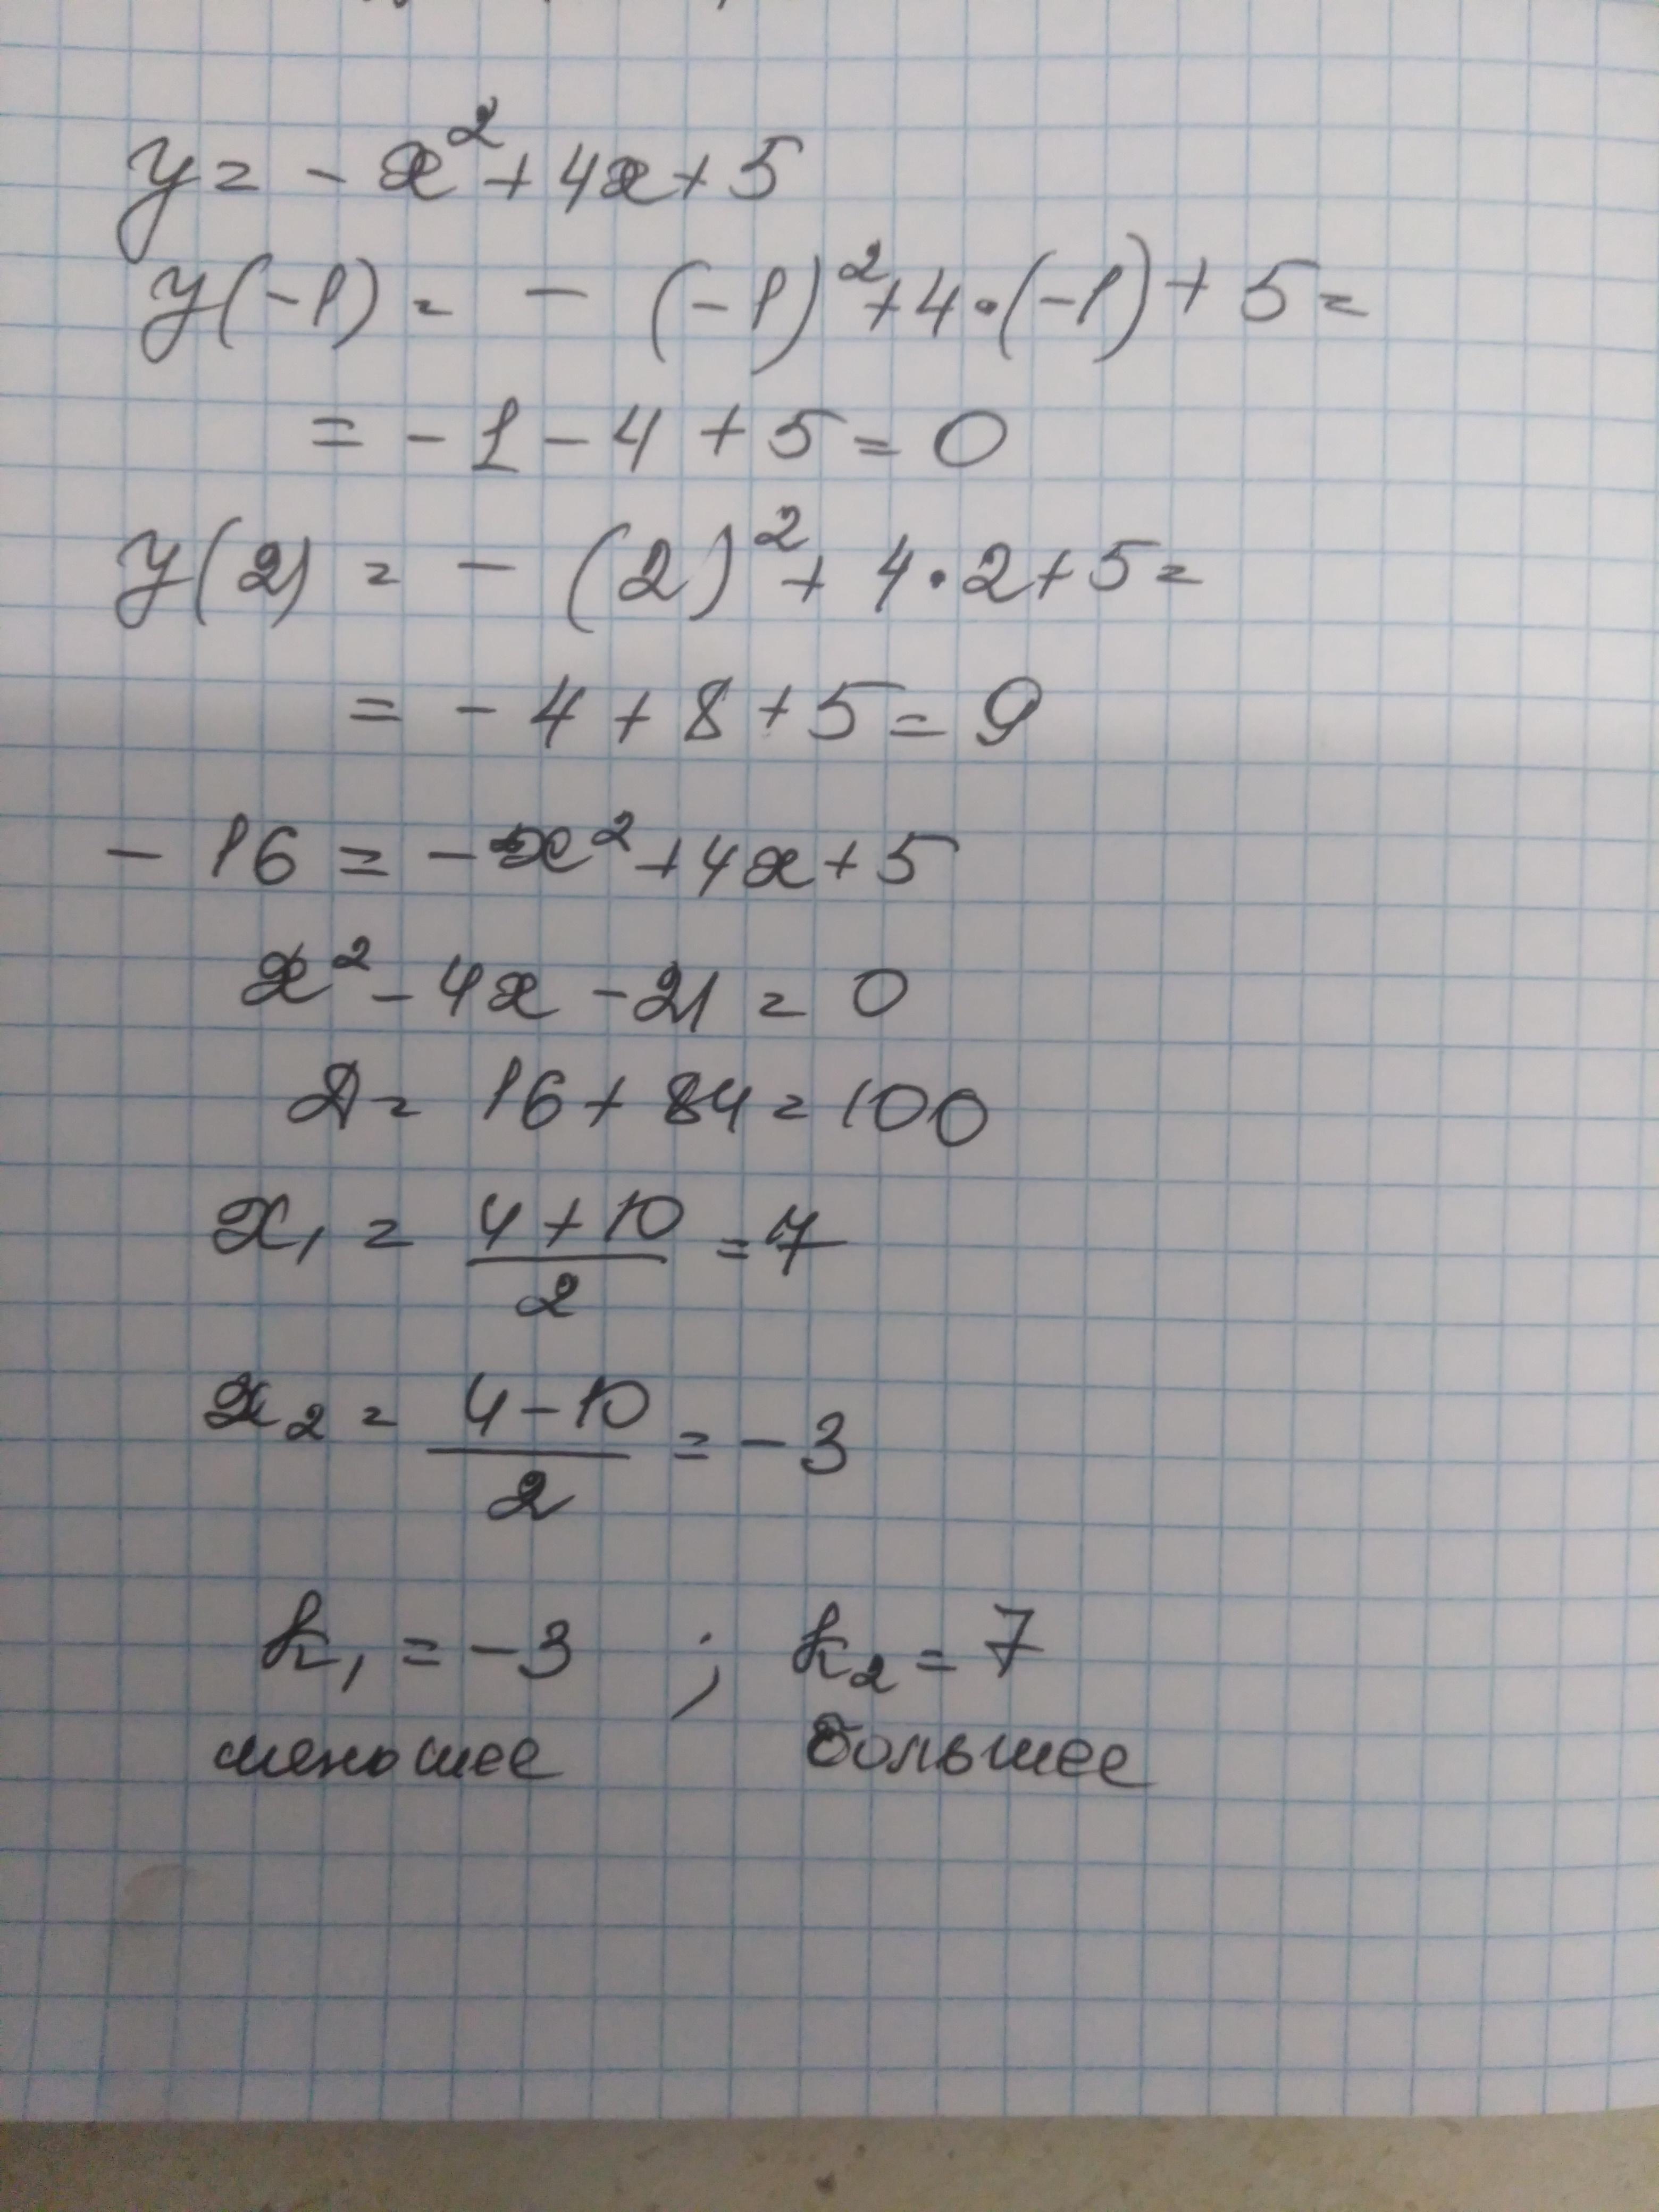 y = - x² + 4x + 5
y(-1) = - (-1)² + 4·(-1) + 5 =
= - 1 - 4 + 5 = 0
y(2) = - (2)² + 4·2 + 5 =
= - 4 + 8 + 5 = 9
- 16 = - x² + 4x + 5
x² - 4x - 21 = 0
Д = 16 + 84 = 100
x₁ = (4 + 10)/2 = 7
x₂ = (4 - 10)/2 = - 3
k₁ = - 3 ; k₂ = 7
меньшее большее